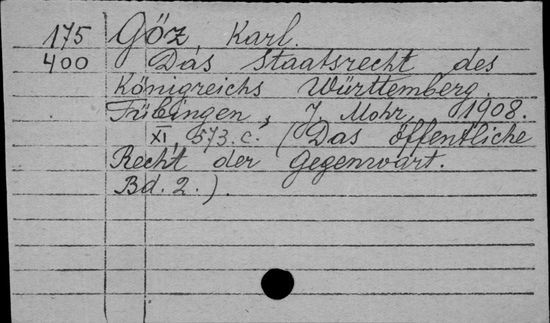 175 Göz Karl.
400 Das Staatsrecht des
Königreichs Württemberg.
Tübingen, J. Mohr, 1908.
XI, 573 c. (Das öffentliche
Recht der Gegenwart.
Bd. 2.).